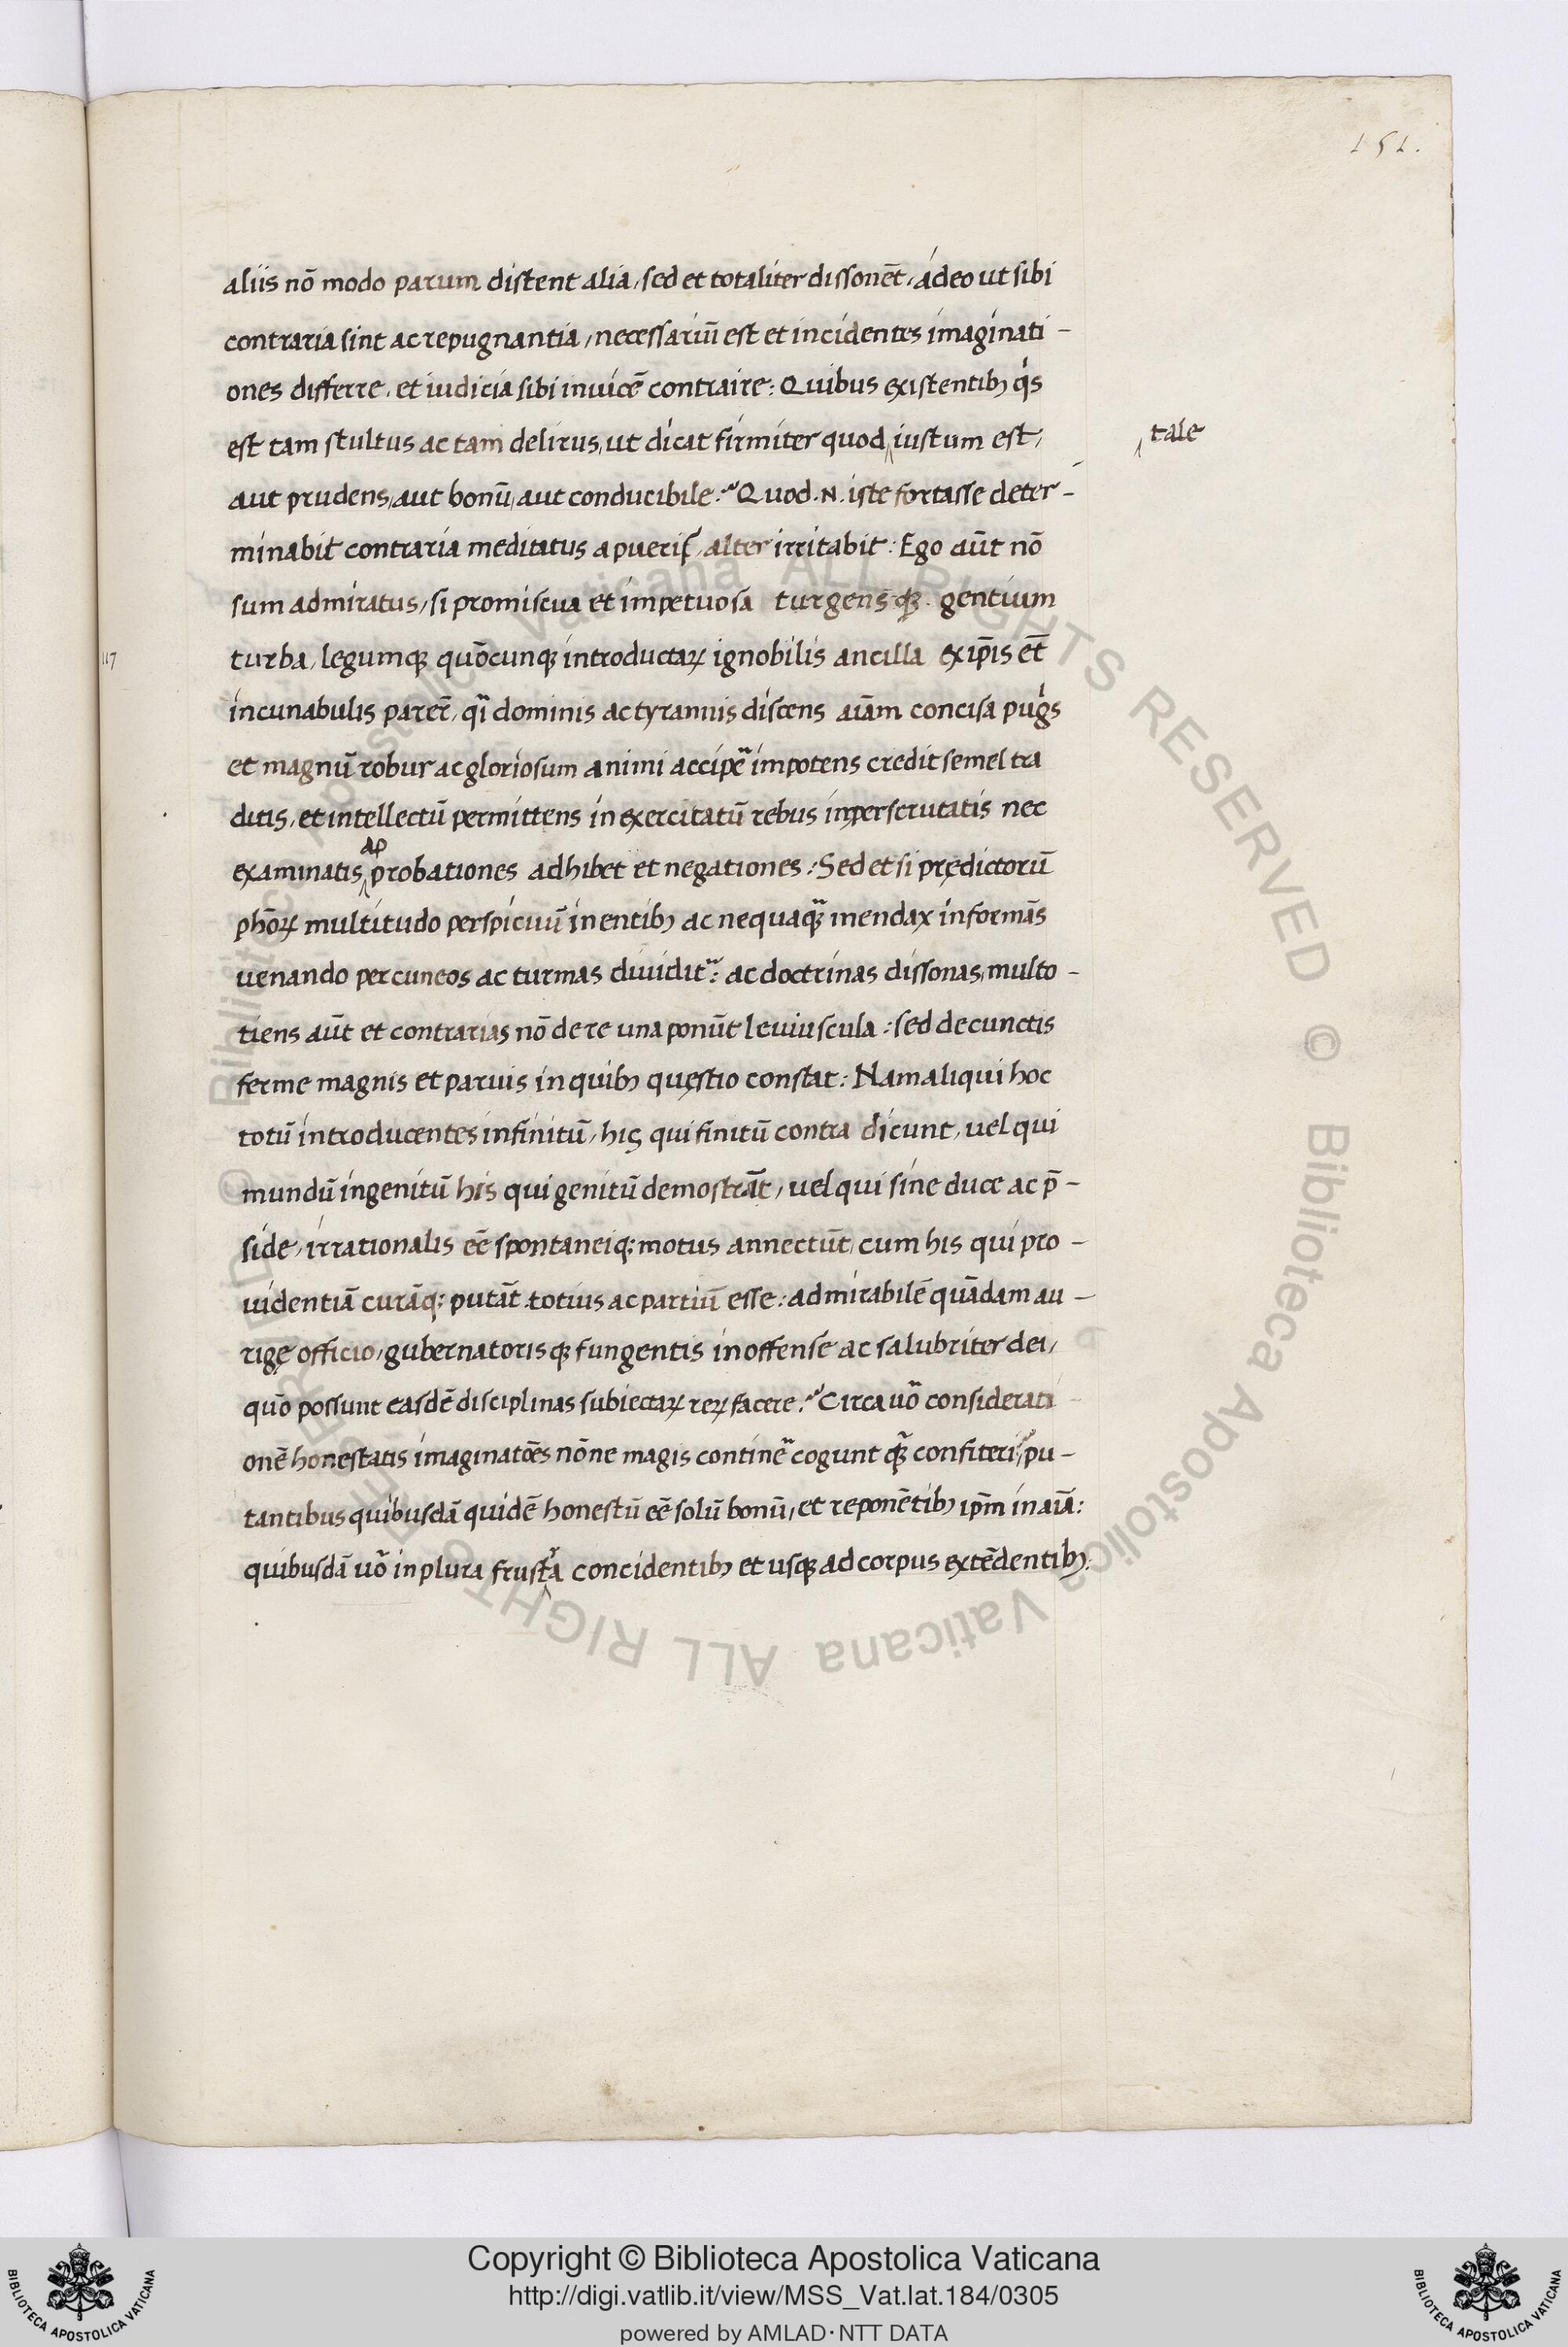 151.
aliis nō modo parum distent alia, sed et totaliter dissonēt, ádeo ut sibi
contraria sint ac repugnantia, necessariū est et incidentes imaginati-
ones differre, et iudicia sibi inuicē contraire: Quibus existentibꝫ qͥs
est tam stultus ac tam delirus, ut dicat firmiter quod iustum est,
tale
aut prudens, aut bonū, aut conducibile: Quod .N. iste fortasse deter-
minabit contraria meditatus a pueris, alter irritabit: Ego aūt nō
sum admiratus, si promiscua et impetuosa turgensqꝫ gentium
turba, legumqꝫ quōcunqꝫ introductaꝝ ignobilis ancilla ex ip̄is et̄
117
incunabulis parer̄, qī dominis ac tyrannis discens aīam concisa pugͥs
et magnū robur ac gloriosum animi accipē impotens credit semel tra
ditis, et intellectū permittens inexercitatū rebus inperscrutatis nec
ap
examinatis probationes adhibet et negationes: Sed et si prędictorū
phōꝝ multitudo perspicuū in entibꝫ ac nequaqꝫ̄ mendax informās
uenando per cuneos ac turmas diuidit᷑: ac doctrinas dissonas, multo-
tiens aūt et contrarias nō de re una ponūt leuiuscula: sed de cunctis
ferme magnis et paruis in quibꝫ quęstio constat: Nam aliqui hoc
totū introducentes infinitū, his qui finitū contra dicunt, uel qui
mundū ingenitū his qui genitū demostrāt, uel qui sine duce ac p̄-
side, irrationalis eē spontaneiq: motus annectūt, cum his qui pro-
uidentiā curāq: putāt totius ac partiū esse: admirabilē quādam au-
rigę officio, gubernatorisqꝫ fungentis inoffense ac salubriter dei,
quō possunt easdē disciplinas subiectaꝝ reꝝ facere: Circa uō considerati-
onē honestatis imaginatōes nōne magis continē cogunt qꝫ̄ confiteri, pu-
tantibus quibusdā quidē honestū eē solū bonū, et reponētibꝫ ip̄m in aīa:
quibusdā uō in plura frustra concidentibꝫ et usqꝫ ad corpus extēdentibꝫ:
© Biblioteca Apostolica Vaticana ALL RIGHTS RESERVED © Biblioteca Apostolica Vaticana ALL RIGHTS RESERVED
Copyright © Biblioteca Apostolica Vaticana
http://digi.vatlib.it/view/MSS_Vat.lat.184/0305
powered by AMLAD·NTT DATA
BIBLIOTECA APOSTOLICA VATICANA
BIBLIOTECA APOSTOLICA VATICANA